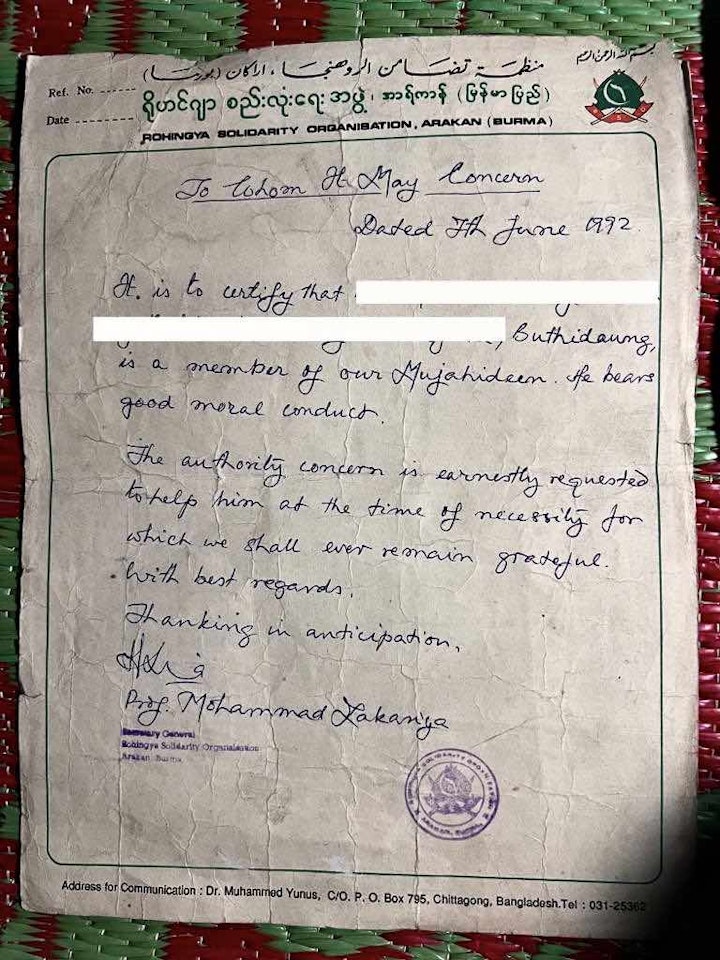 بسم الله الرحمن الرحيم
منظمة تضامن الروهنجيا، اراكان (بورما)
Ref. No. ------
ရိုဟင်ဂျာ စည်းလုံးရေး အဖွဲ့, အာရ်ကာန် (မြန်မာပြည်)
Date ---------
ROHINGYA SOLIDARITY ORGANISATION, ARAKAN (BURMA)
R S O
To Whom It May Concern
Dated 7th June 1992.
It is to certify that
, Buthidaung,
is a member of our Mujahideen. He bears
good moral conduct.
The authority concern is earnestly requested
to help him at the time of necessity for
which we shall ever remain grateful.
With best regards.
Thanking in anticipation,
Prof. Mohammad Zakariya
Secretary General
Rohingya Solidarity Organisation
Arakan Burma
ROHINGYA SOLIDARITY ORGANISATION
ARAKAN, BURMA
Address for Communication : Dr. Muhammed Yunus, C/O. P. O. Box 795, Chittagong, Bangladesh.Tel : 031-25362